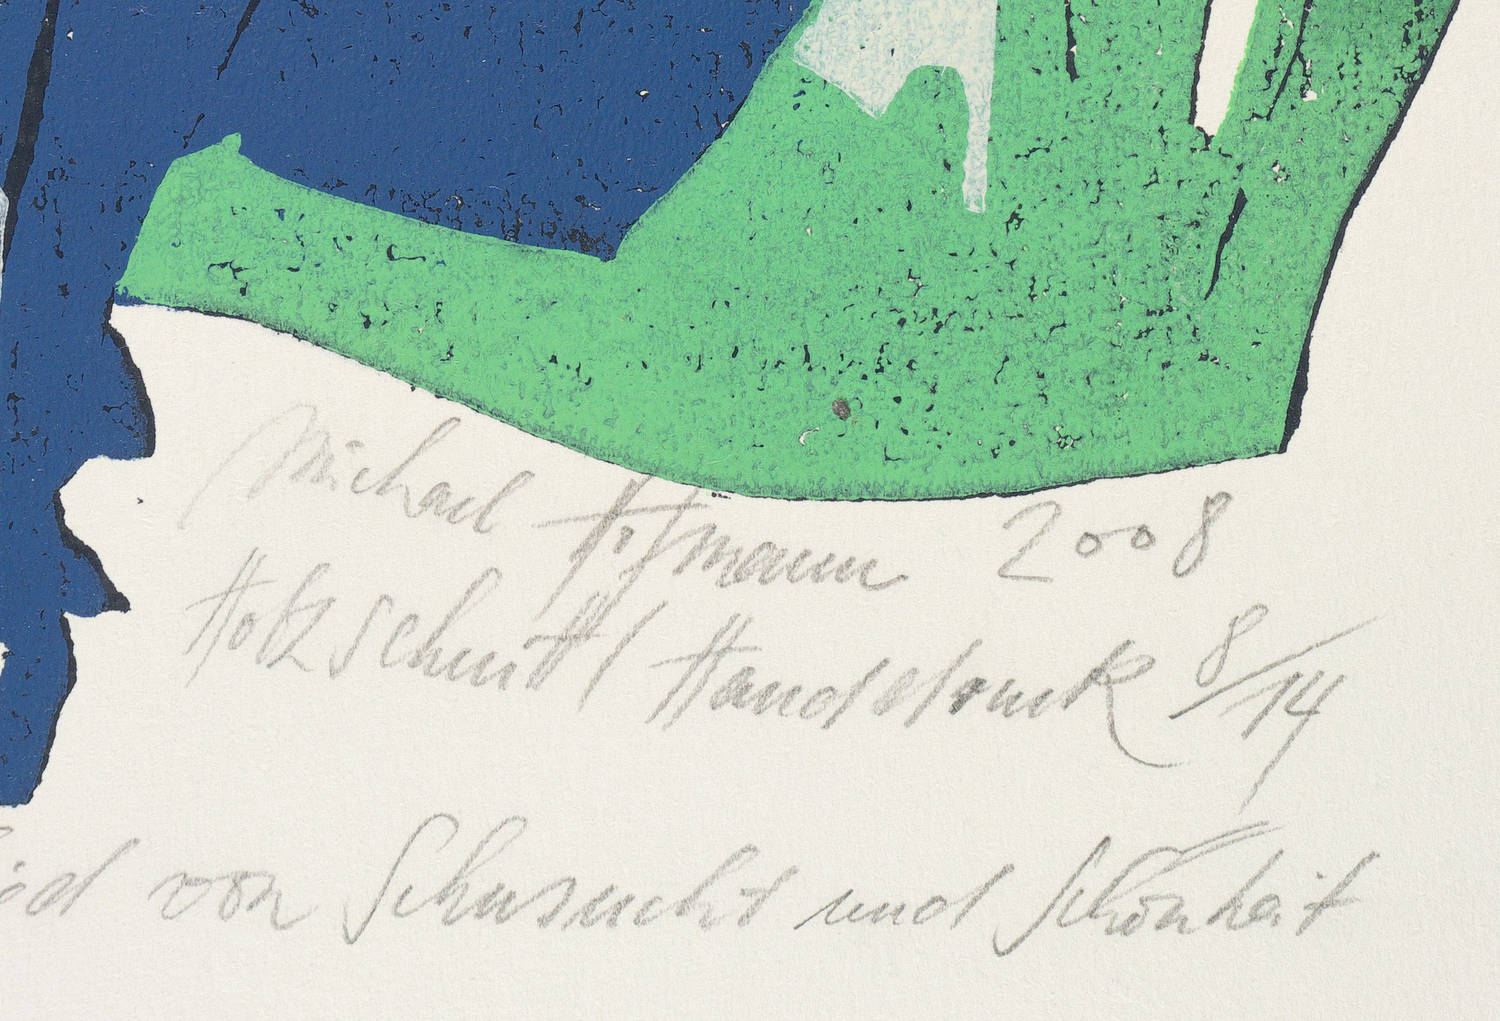 Michael Hofmann 2008
Holzschnitt / Handdruck 8/14
ied von Sehnsucht und Schönheit